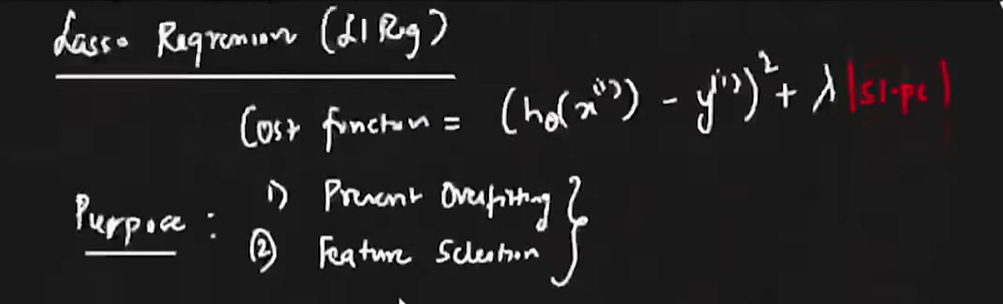 Lasso Regression (L1 Reg)
Cost function = (hθ(x⁽ⁱ⁾) - y⁽ⁱ⁾)² + λ |slope|
Purpose :
1) Prevent Overfitting
2) Feature Selection